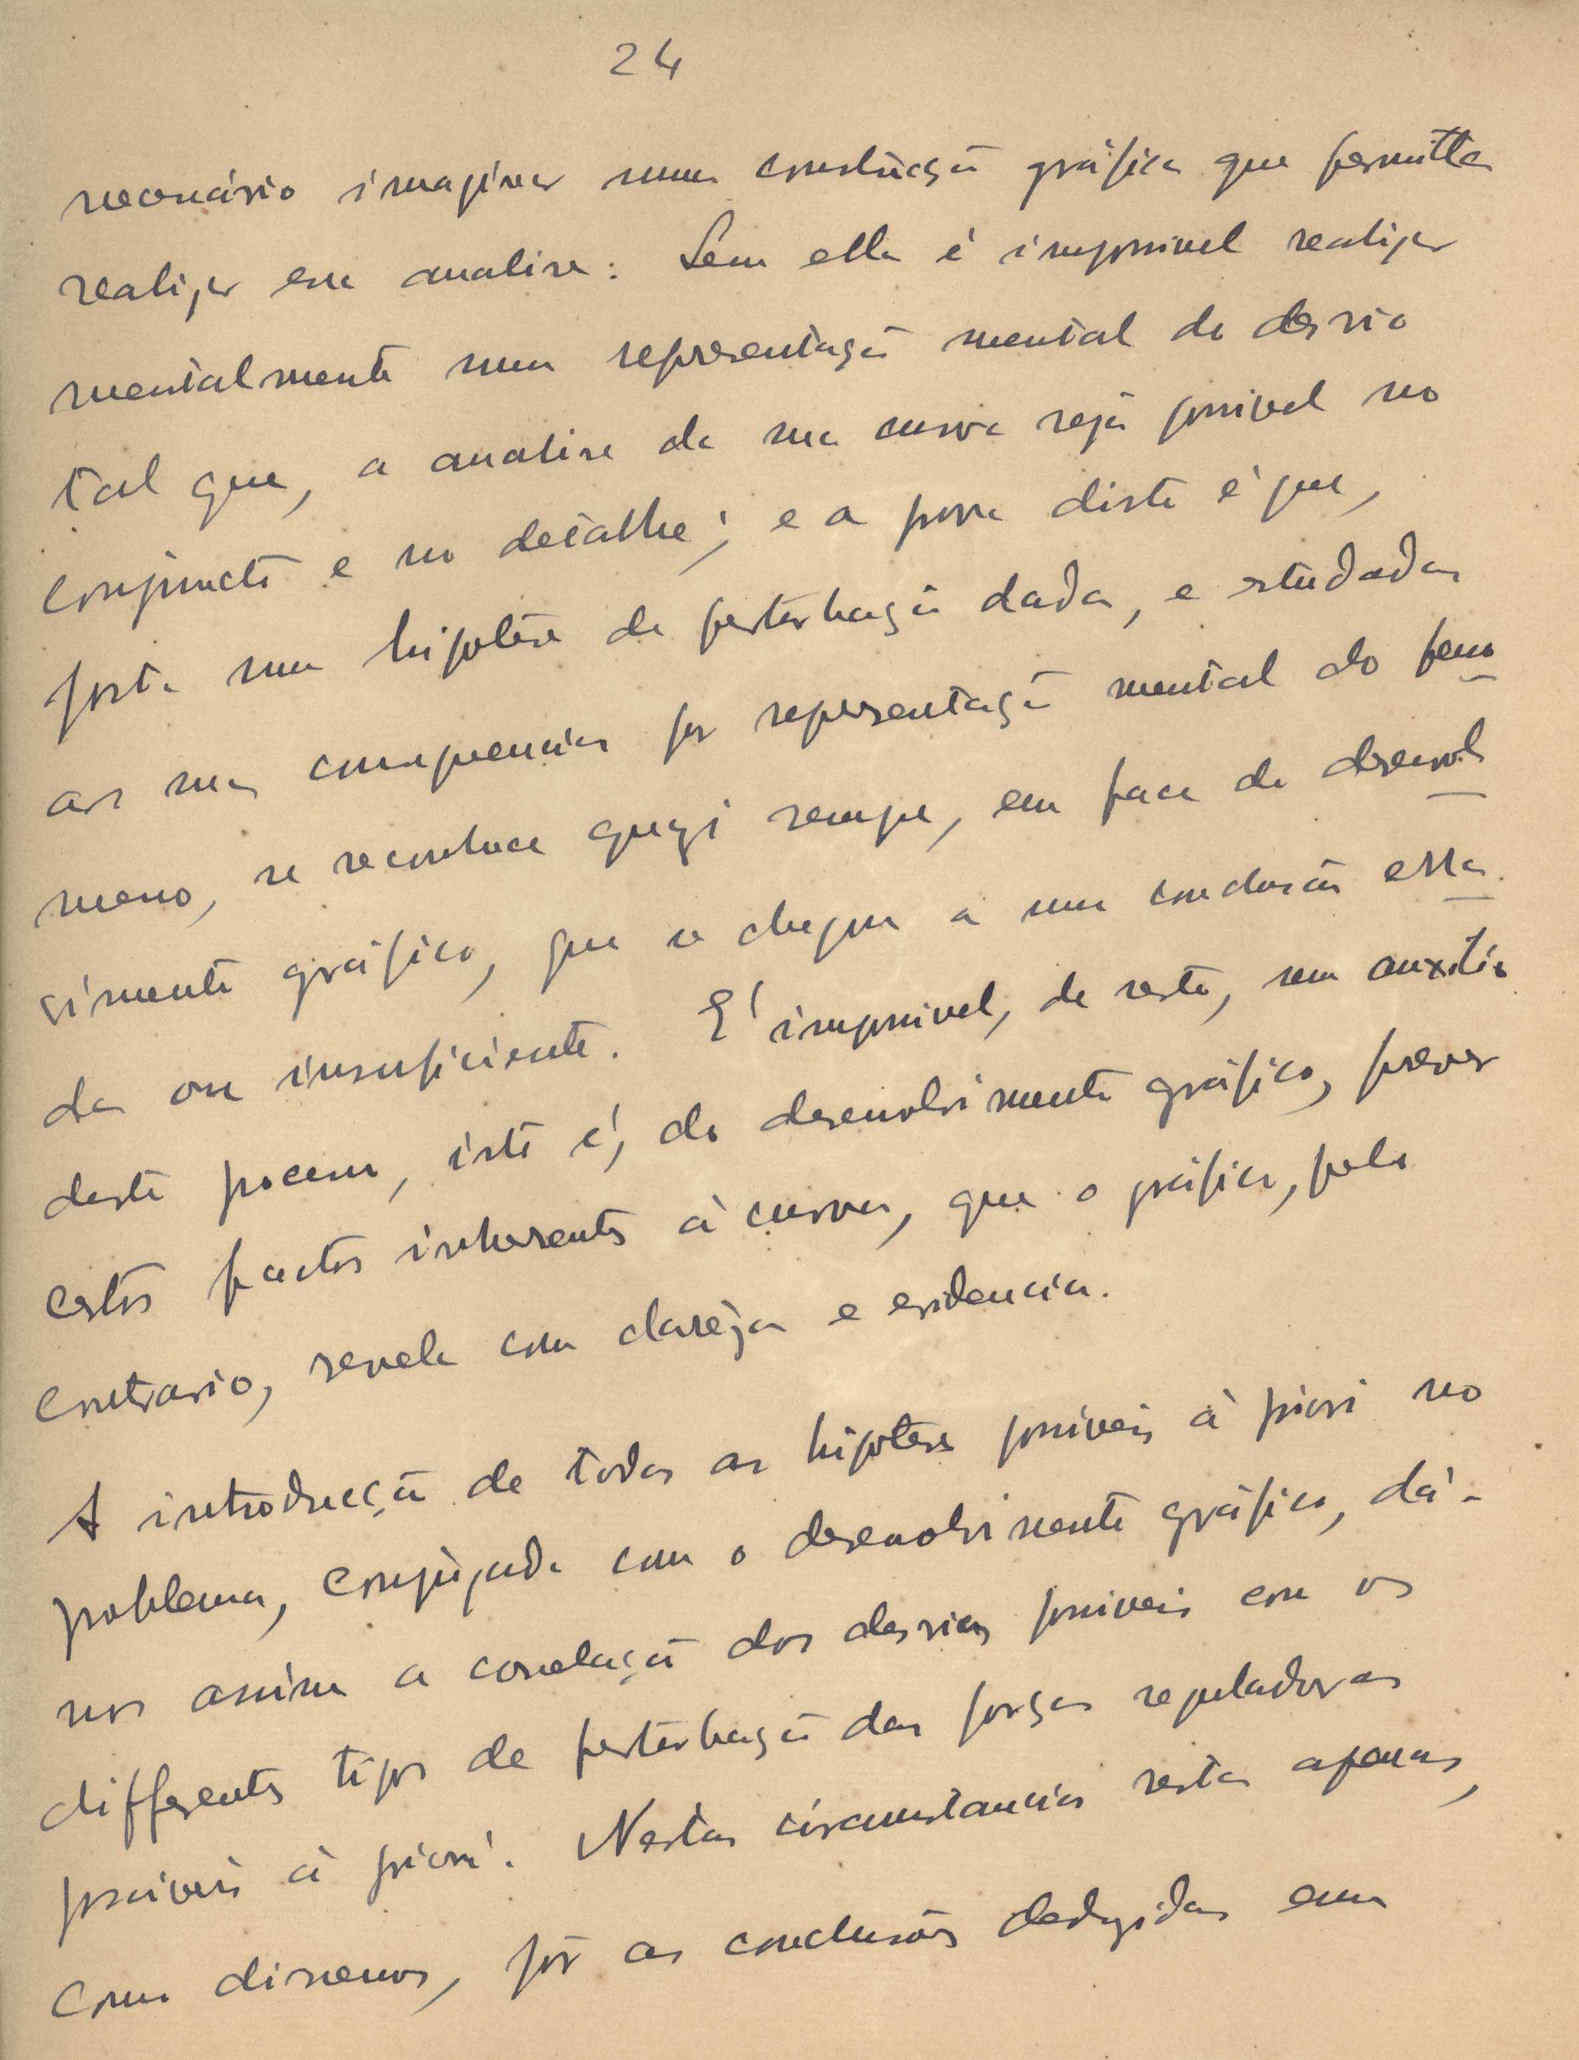 24
necessário imaginar uma construcção gráfica que permitta
realizar essa analise: Sem ella é impossivel realizar
mentalmente uma representação mental do desvio
tal que, a analise da sua curva seja possivel no
conjuncto e no detalhe; e a prova disto é que,
posta uma hipotese de perturbação dada, e estudadas
as suas consequencias por representação mental do feno
meno, se reconhece quazi sempre, em face do desenvol
vimento gráfico, que se chegou a uma conclusão erra
da ou insuficiente. É impossivel, de resto, sem auxilio
deste processo, isto é, do desenvolvimento gráfico, prever
certos factos inherentes á curva, que o gráfico, pelo
contrario, revela com clareza e evidencia.
A introducção de todas as hipoteses possiveis á priori no
problema, conjugada com o desenvolvimento gráfico, dá-
nos assim a correlação dos desvios possiveis com os
differentes tipos de perturbação das forças reguladoras
possiveis á priori. Nestas circumstancias resta apenas,
como dissemos, pôr as conclusões deduzidas em